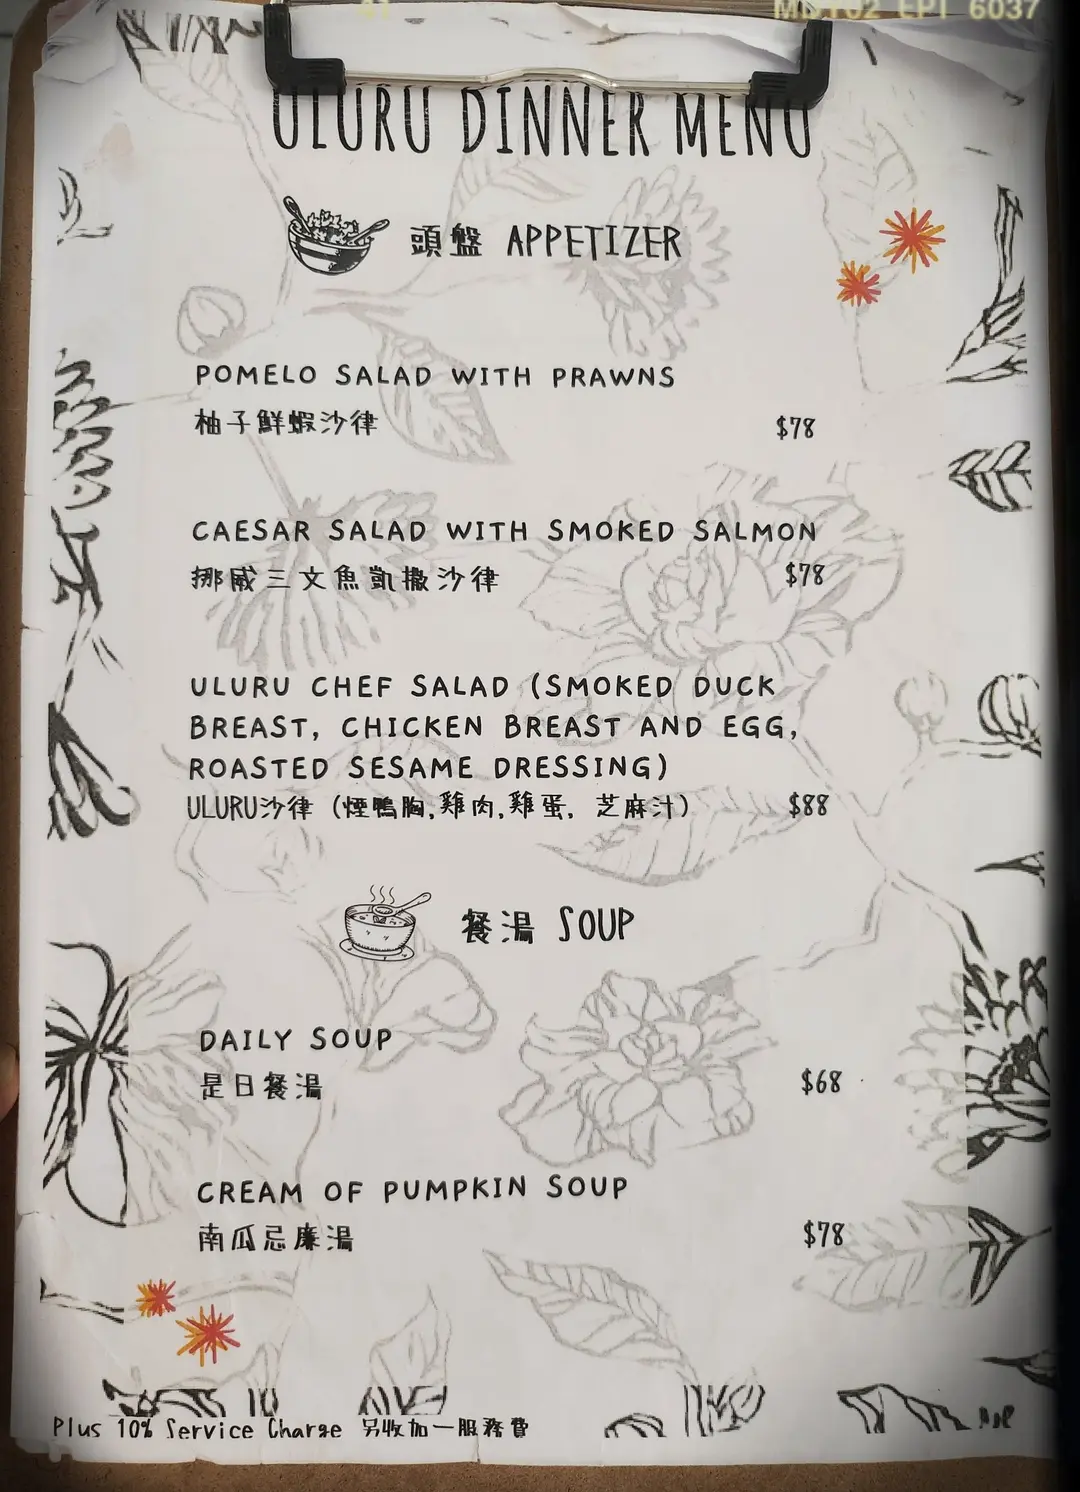 41
ULURU DINNER MENU
頭盤 APPETIZER
POMELO SALAD WITH PRAWNS
柚子鮮蝦沙律
$78
CAESAR SALAD WITH SMOKED SALMON
挪威三文魚凱撒沙律
$78
ULURU CHEF SALAD (SMOKED DUCK
BREAST, CHICKEN BREAST AND EGG,
ROASTED SESAME DRESSING)
ULURU沙律 (煙鴨胸,雞肉,雞蛋, 芝麻汁)
$88
餐湯 SOUP
DAILY SOUP
是日餐湯
$68
CREAM OF PUMPKIN SOUP
南瓜忌廉湯
$78
Plus 10% Service Charge 另收加一服務費